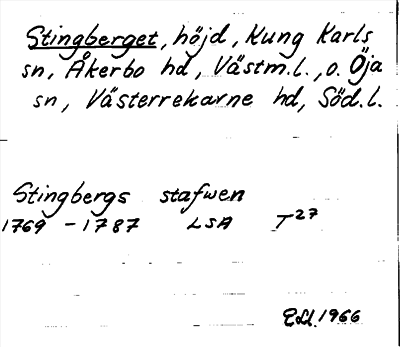 Stingberget, höjd, Kung Karls
sn, Åkerbo hd, Västm.l., o. Öja
sn, Västerrekarne hd, Söd.l.
Stingbergs stafwen
1769 - 1787 LSA T27
1966